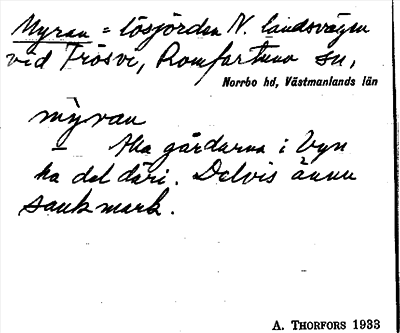 Myran = lösjorden N. landsvägen
vid Frösvi, Romfartuna sn,
Norrbo hd, Västmanlands län
my̆ran
Alla gårdarna i byn
ha del däri. Delvis ännu
sank mark.
A. THORFORS 1933